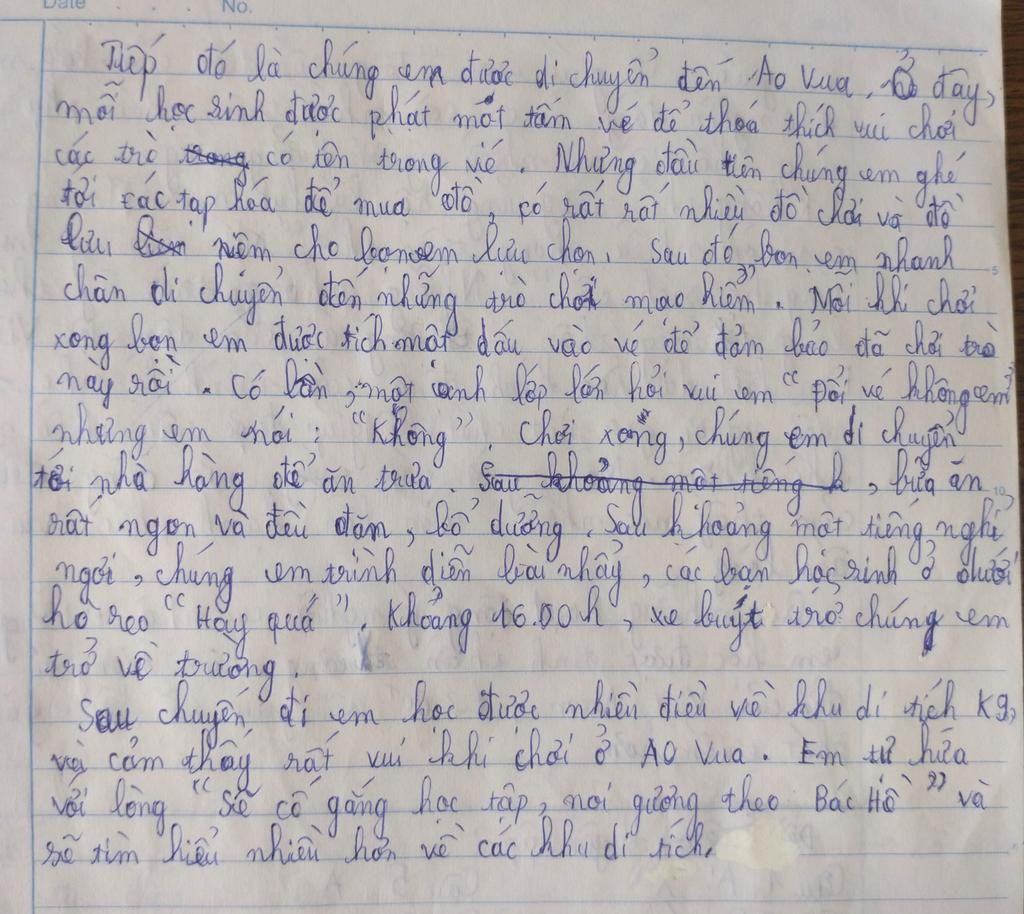 Date No.
Tiếp đó là chúng em được di chuyển đến Ao Vua. Ở đây,
mỗi học sinh được phát một tấm vé để thoả thích vui chơi
các trò trong có tên trong vé. Nhưng đầu tiên chúng em ghé
tới các tạp hóa để mua đồ, có rất rất nhiều đồ chơi và đồ
lưu niệm cho bọn em lựu chọn. Sau đó, bọn em nhanh
chân di chuyển đến những trò chơi mạo hiểm. Mỗi khi chơi
xong bọn em được tích một dấu vào vé để đảm bảo đã chơi trò
này rồi. Có lần, một anh lớp lớn hỏi vui em "Đổi vé không em?
nhưng em nói: "Không". Chơi xong, chúng em di chuyển
tới nhà hàng để ăn trưa. Sau khoảng một tiếng h, bữa ăn
rất ngon và đều đăn, bổ dưỡng. Sau khoảng một tiếng nghỉ
ngơi, chúng em trình diễn bài nhảy, các bạn học sinh ở dưới
hò reo "Hay quá". Khoảng 16.00h, xe buýt trở chúng em
trở về trường.
Sau chuyến đi em học được nhiều điều về khu di tích K9,
và cảm thấy rất vui khi chơi ở Ao Vua. Em tự hứa
với lòng "Sẽ cố gắng học tập, noi gương theo Bác Hồ" và
sẽ tìm hiểu nhiều hơn về các khu di tích.